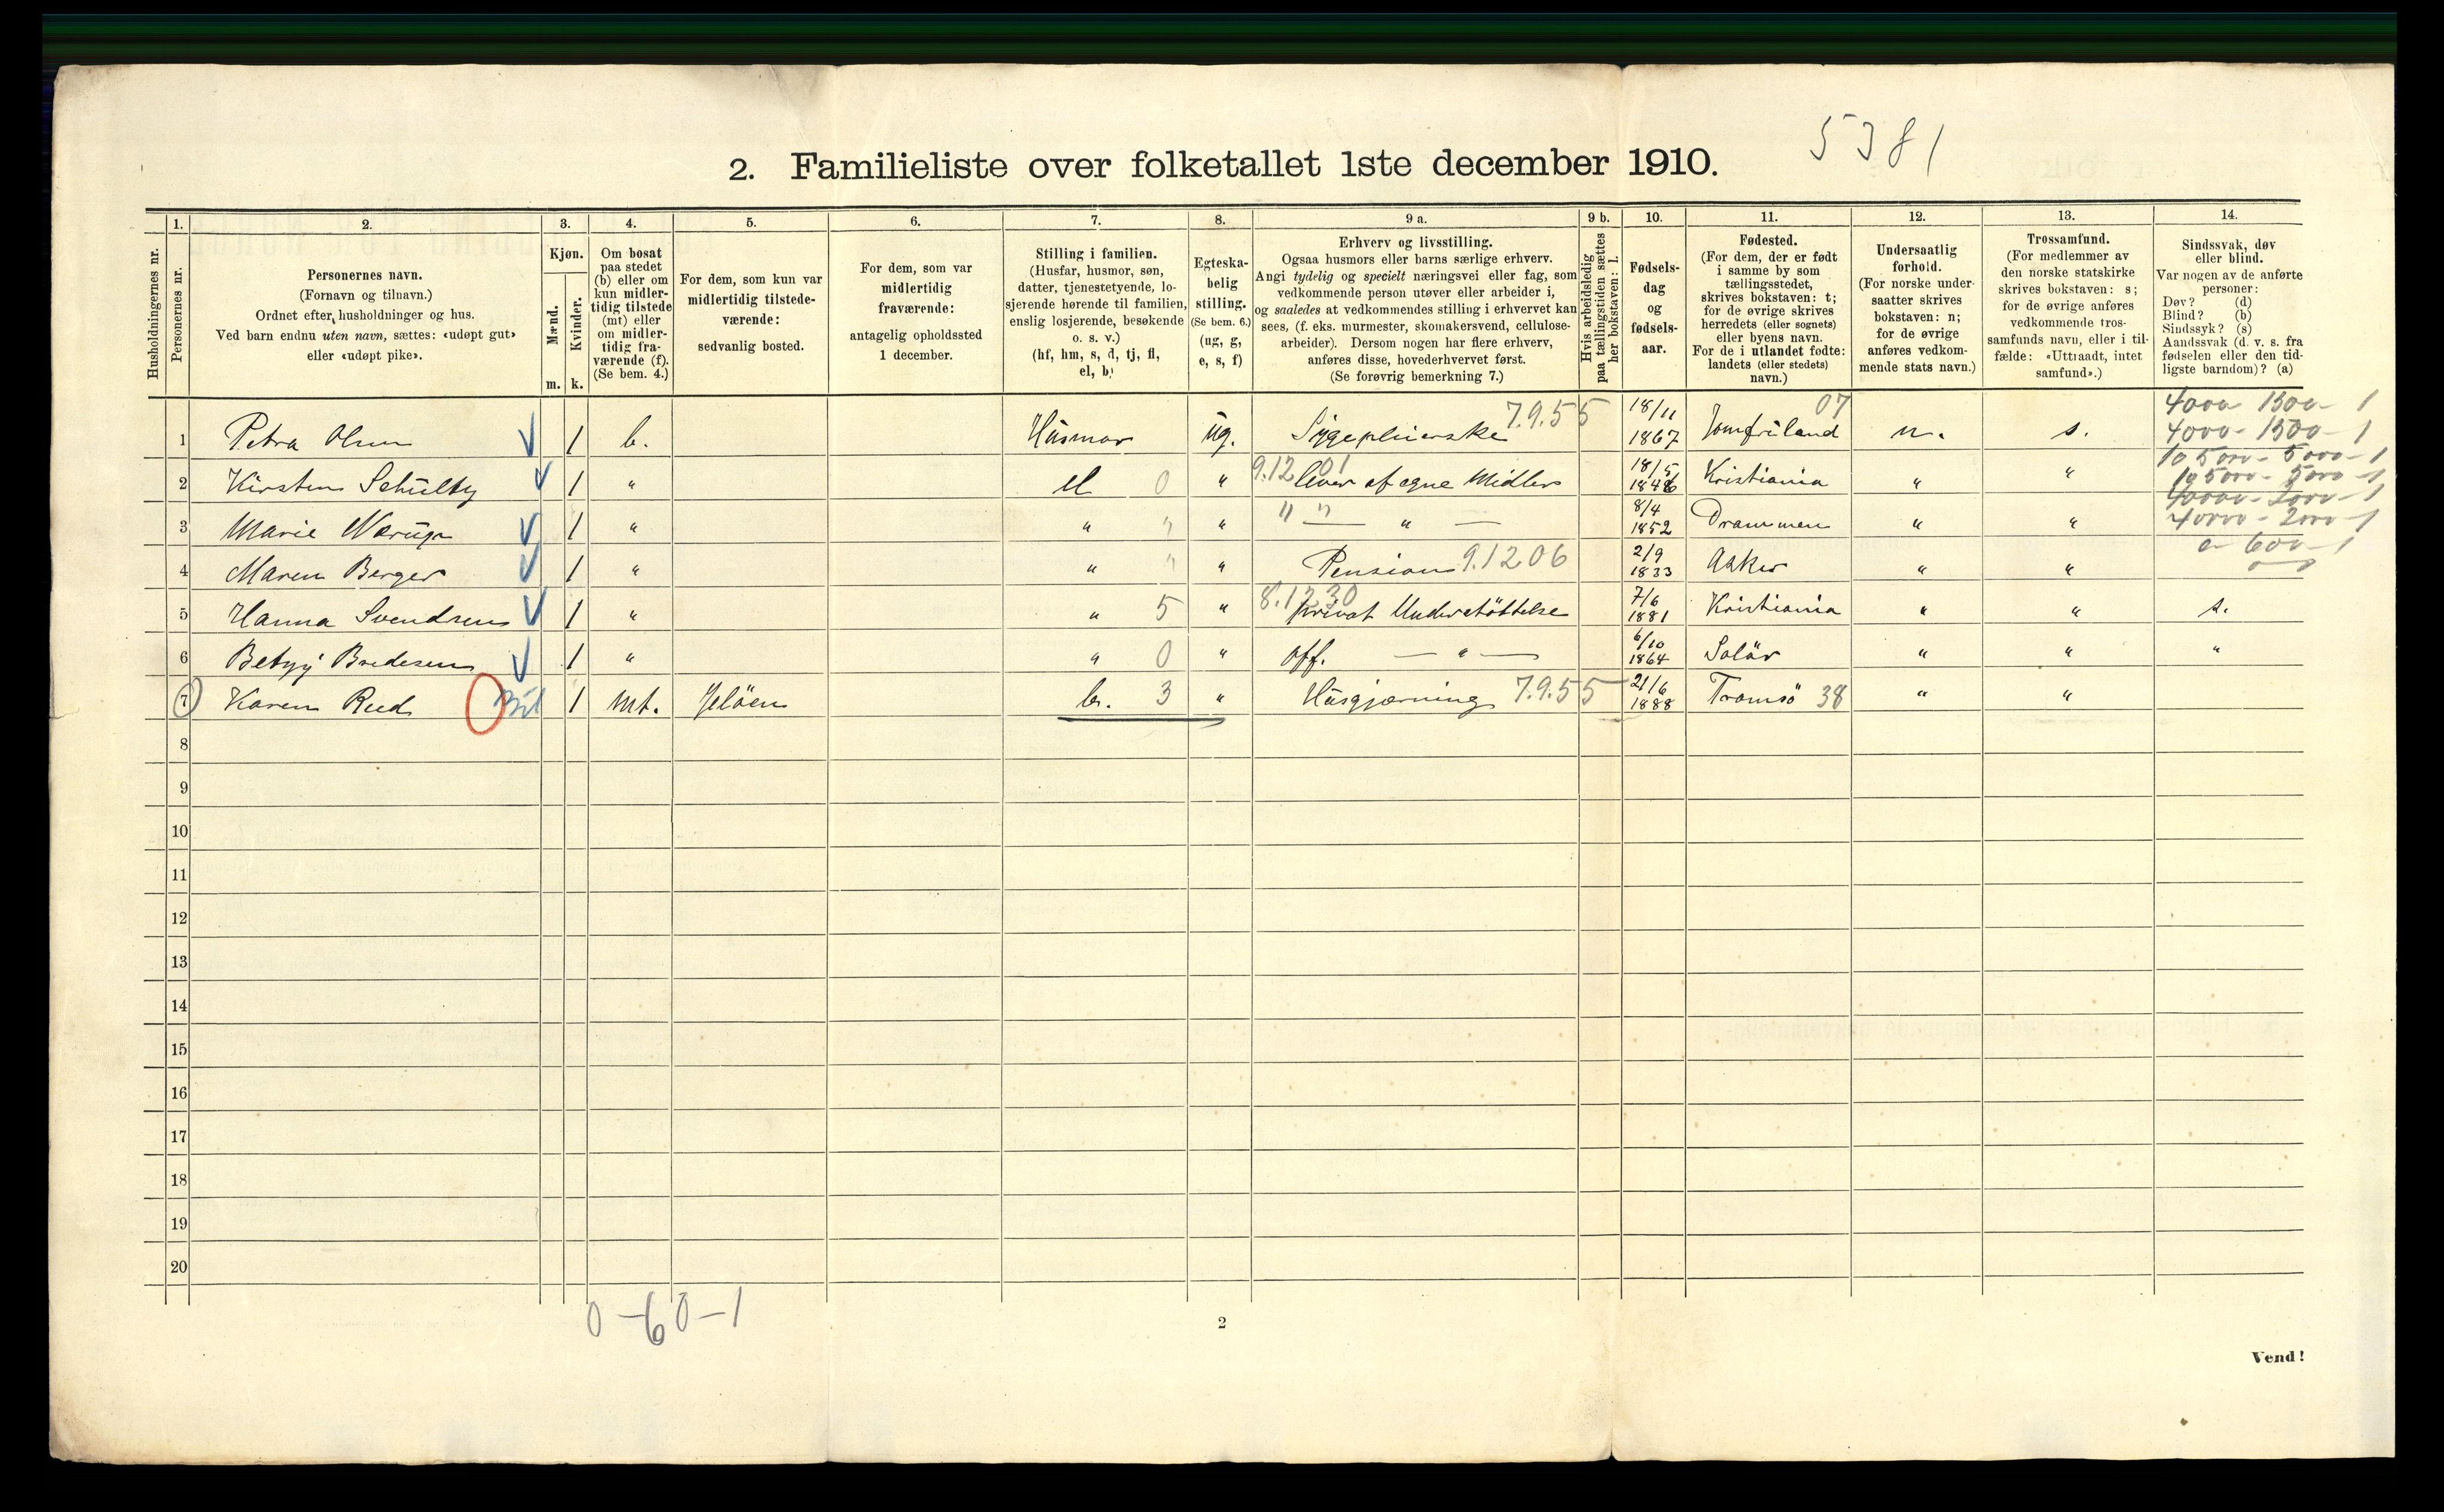 5381
2. Familieliste over folketallet 1ste december 1910.
1. 2. 3. 4. 5. 6. 7. 8. 9 a. 9 b. 10. 11. 12. 13. 14.
Husholdningernes nr.
Personernes nr.
Personernes navn.
(Fornavn og tilnavn.)
Ordnet efter husholdninger og hus.
Ved barn endnu uten navn, sættes: «udøpt gut»
eller «udøpt pike».
Kjøn.
Mænd.
Kvinder.
m. k.
Om bosat
paa stedet
(b) eller om
kun midler-
tidig tilstede
(mt) eller
om midler-
tidig fra-
værende (f).
(Se bem. 4.)
For dem, som kun var
midlertidig tilstede-
værende:
sedvanlig bosted.
For dem, som var
midlertidig
fraværende:
antagelig opholdssted
1 december.
Stilling i familien.
(Husfar, husmor, søn,
datter, tjenestetyende, lo-
sjerende hørende til familien,
enslig losjerende, besøkende
o. s. v.)
(hf, hm, s, d, tj, fl,
el, b)
Egteska-
belig
stilling.
(Se bem. 6.)
(ug, g,
e, s, f)
Erhverv og livsstilling.
Ogsaa husmors eller barns særlige erhverv.
Angi tydelig og specielt næringsvei eller fag, som
vedkommende person utøver eller arbeider i,
og saaledes at vedkommendes stilling i erhvervet kan
sees, (f. eks. murmester, skomakersvend, cellulose-
arbeider). Dersom nogen har flere erhverv,
anføres disse, hovederhvervet først.
(Se forøvrig bemerkning 7.)
Hvis arbeidsledig
paa tællingstiden sættes
her bokstaven: l.
Fødsels-
dag
og
fødsels-
aar.
Fødested.
(For dem, der er født
i samme by som
tællingsstedet,
skrives bokstaven: t;
for de øvrige skrives
herredets (eller sognets)
eller byens navn.
For de i utlandet fødte:
landets (eller stedets)
navn.)
Undersaatlig
forhold.
(For norske under-
saatter skrives
bokstaven: n;
for de øvrige
anføres vedkom-
mende stats navn.)
Trossamfund.
(For medlemmer av
den norske statskirke
skrives bokstaven: s;
for de øvrige anføres
vedkommende tros-
samfunds navn, eller i til-
fælde: «Uttraadt, intet
samfund».)
Sindssvak, døv
eller blind.
Var nogen av de anførte
personer:
Døv? (d)
Blind? (b)
Sindssyk? (s)
Aandssvak (d. v. s. fra
fødselen eller den tid-
ligste barndom)? (a)
1 Petra Olsen 1 b. Husmor ug. Sygepleierske 7.9.55 18/11 1867 Jomfruland 07 n. s. 4000 - 1300 - 1
2 Kirsten Schultz 1 " el 0 " 9.12 01 lever af egne Midler 18/5 1846 Kristiania " "
3 Marie Narup 1 " " " " " " — " — 8/4 1852 Drammen " "
4 Maren Berger 1 " " " " Pension 9.12 06 2/9 1833 Aker " "
5 Hanna Svendsen 1 " " 5 " 8.12 30 privat Understöttelse 7/6 1881 Kristiania " " s.
6 Betzy Bredesen 1 " " 0 " off. — " — 6/10 1864 Solör " " "
7 Karen Rud 1 mt. Jelöen b. 3 " Husgjærning 7.9.55 21/6 1888 Tromsö 38 " "
8
9
10
11
12
13
14
15
16
17
18
19
20
0 - 6 0 - 1
2
Vend!